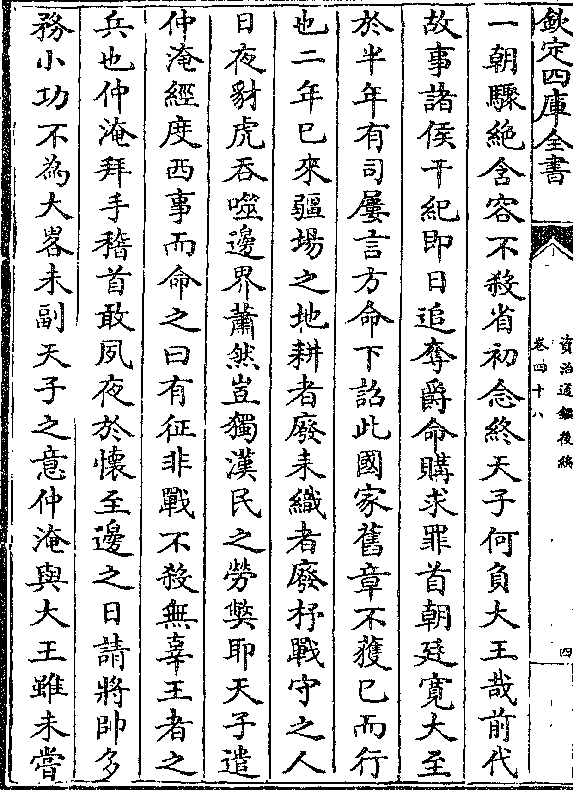 欽定四庫全書
資治通鑑後編
卷四十八
四
一朝驟絶含容不殺省初念終天子何負大王哉前代
故事諸侯干紀即日追奪爵命購求罪首朝廷寛大至
於半年有司屢言方命下詔此國家舊章不獲已而行
也二年已來疆場之地耕者廢耒織者廢杼戰守之人
日夜豺虎吞噬邊界蕭然豈獨漢民之勞獘耶天子遣
仲淹經度西事而命之曰有征非戰不殺無辜王者之
兵也仲淹拜手稽首敢夙夜於懷至邊之日請將帥多
務小功不為大畧未副天子之意仲淹與大王雖未嘗